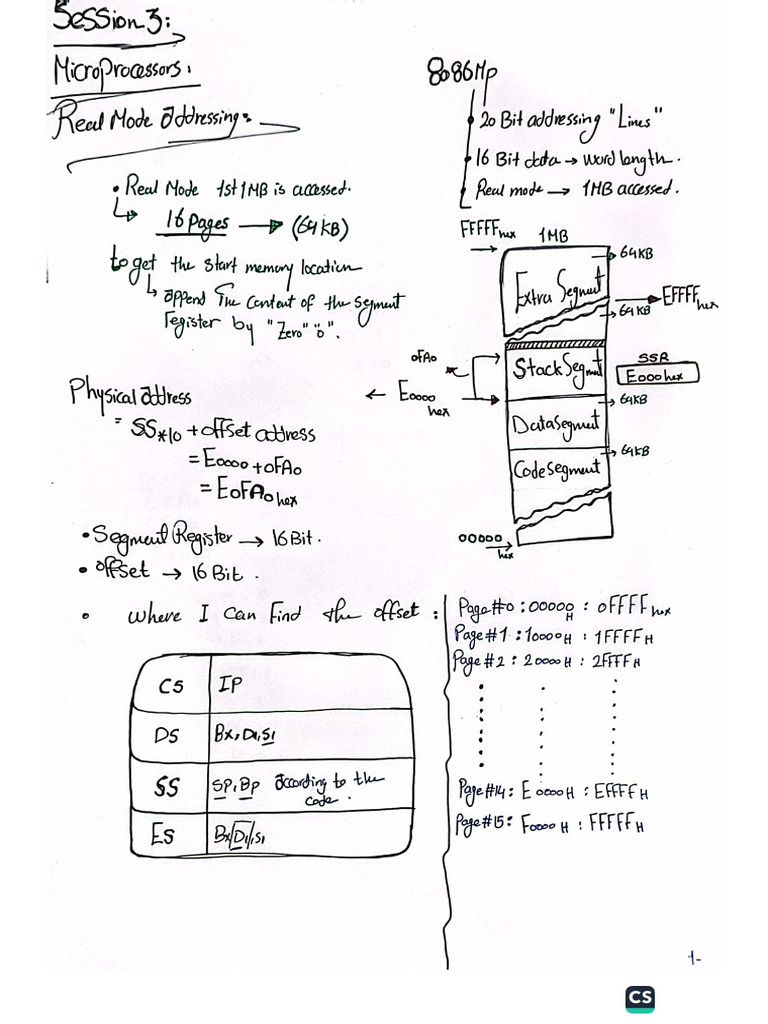 Session 3:
Microprocessors.
Real Mode addressing:
8086 Mp
20 Bit addressing "Lines"
16 Bit data → word length.
Real mode → 1MB accessed.
• Real Mode 1st 1MB is accessed.
↳ 16 Pages → (64KB)
to get the start memory location
↳ append The content of the segment
register by "Zero" "0".
FFFFF hex
1MB
64KB
Extra Segment
EFFFF hex
64KB
0FA0
Stack Segment
SSR
E000 hex
← E0000 hex
64KB
Data Segment
64KB
Code Segment
00000 hex
Physical address
= SS*10 + offset address
= E0000 + 0FA0
= E0FA0 hex
• Segment Register → 16 Bit.
• offset → 16 Bit.
• where I can Find the offset :
CS IP
DS BX, DI, SI
SS SP, BP according to the
code.
ES BX, DI, SI
Page#0 : 00000H : 0FFFF hex
Page#1 : 10000H : 1FFFFH
Page#2 : 20000H : 2FFFFH
Page#14 : E0000H : EFFFFH
Page#15 : F0000H : FFFFFH
1-
CS